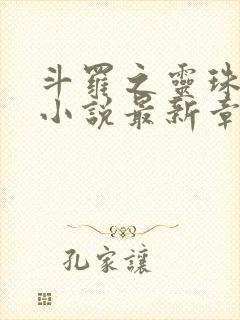 斗羅之靈珠
小說最新章
孔家讓